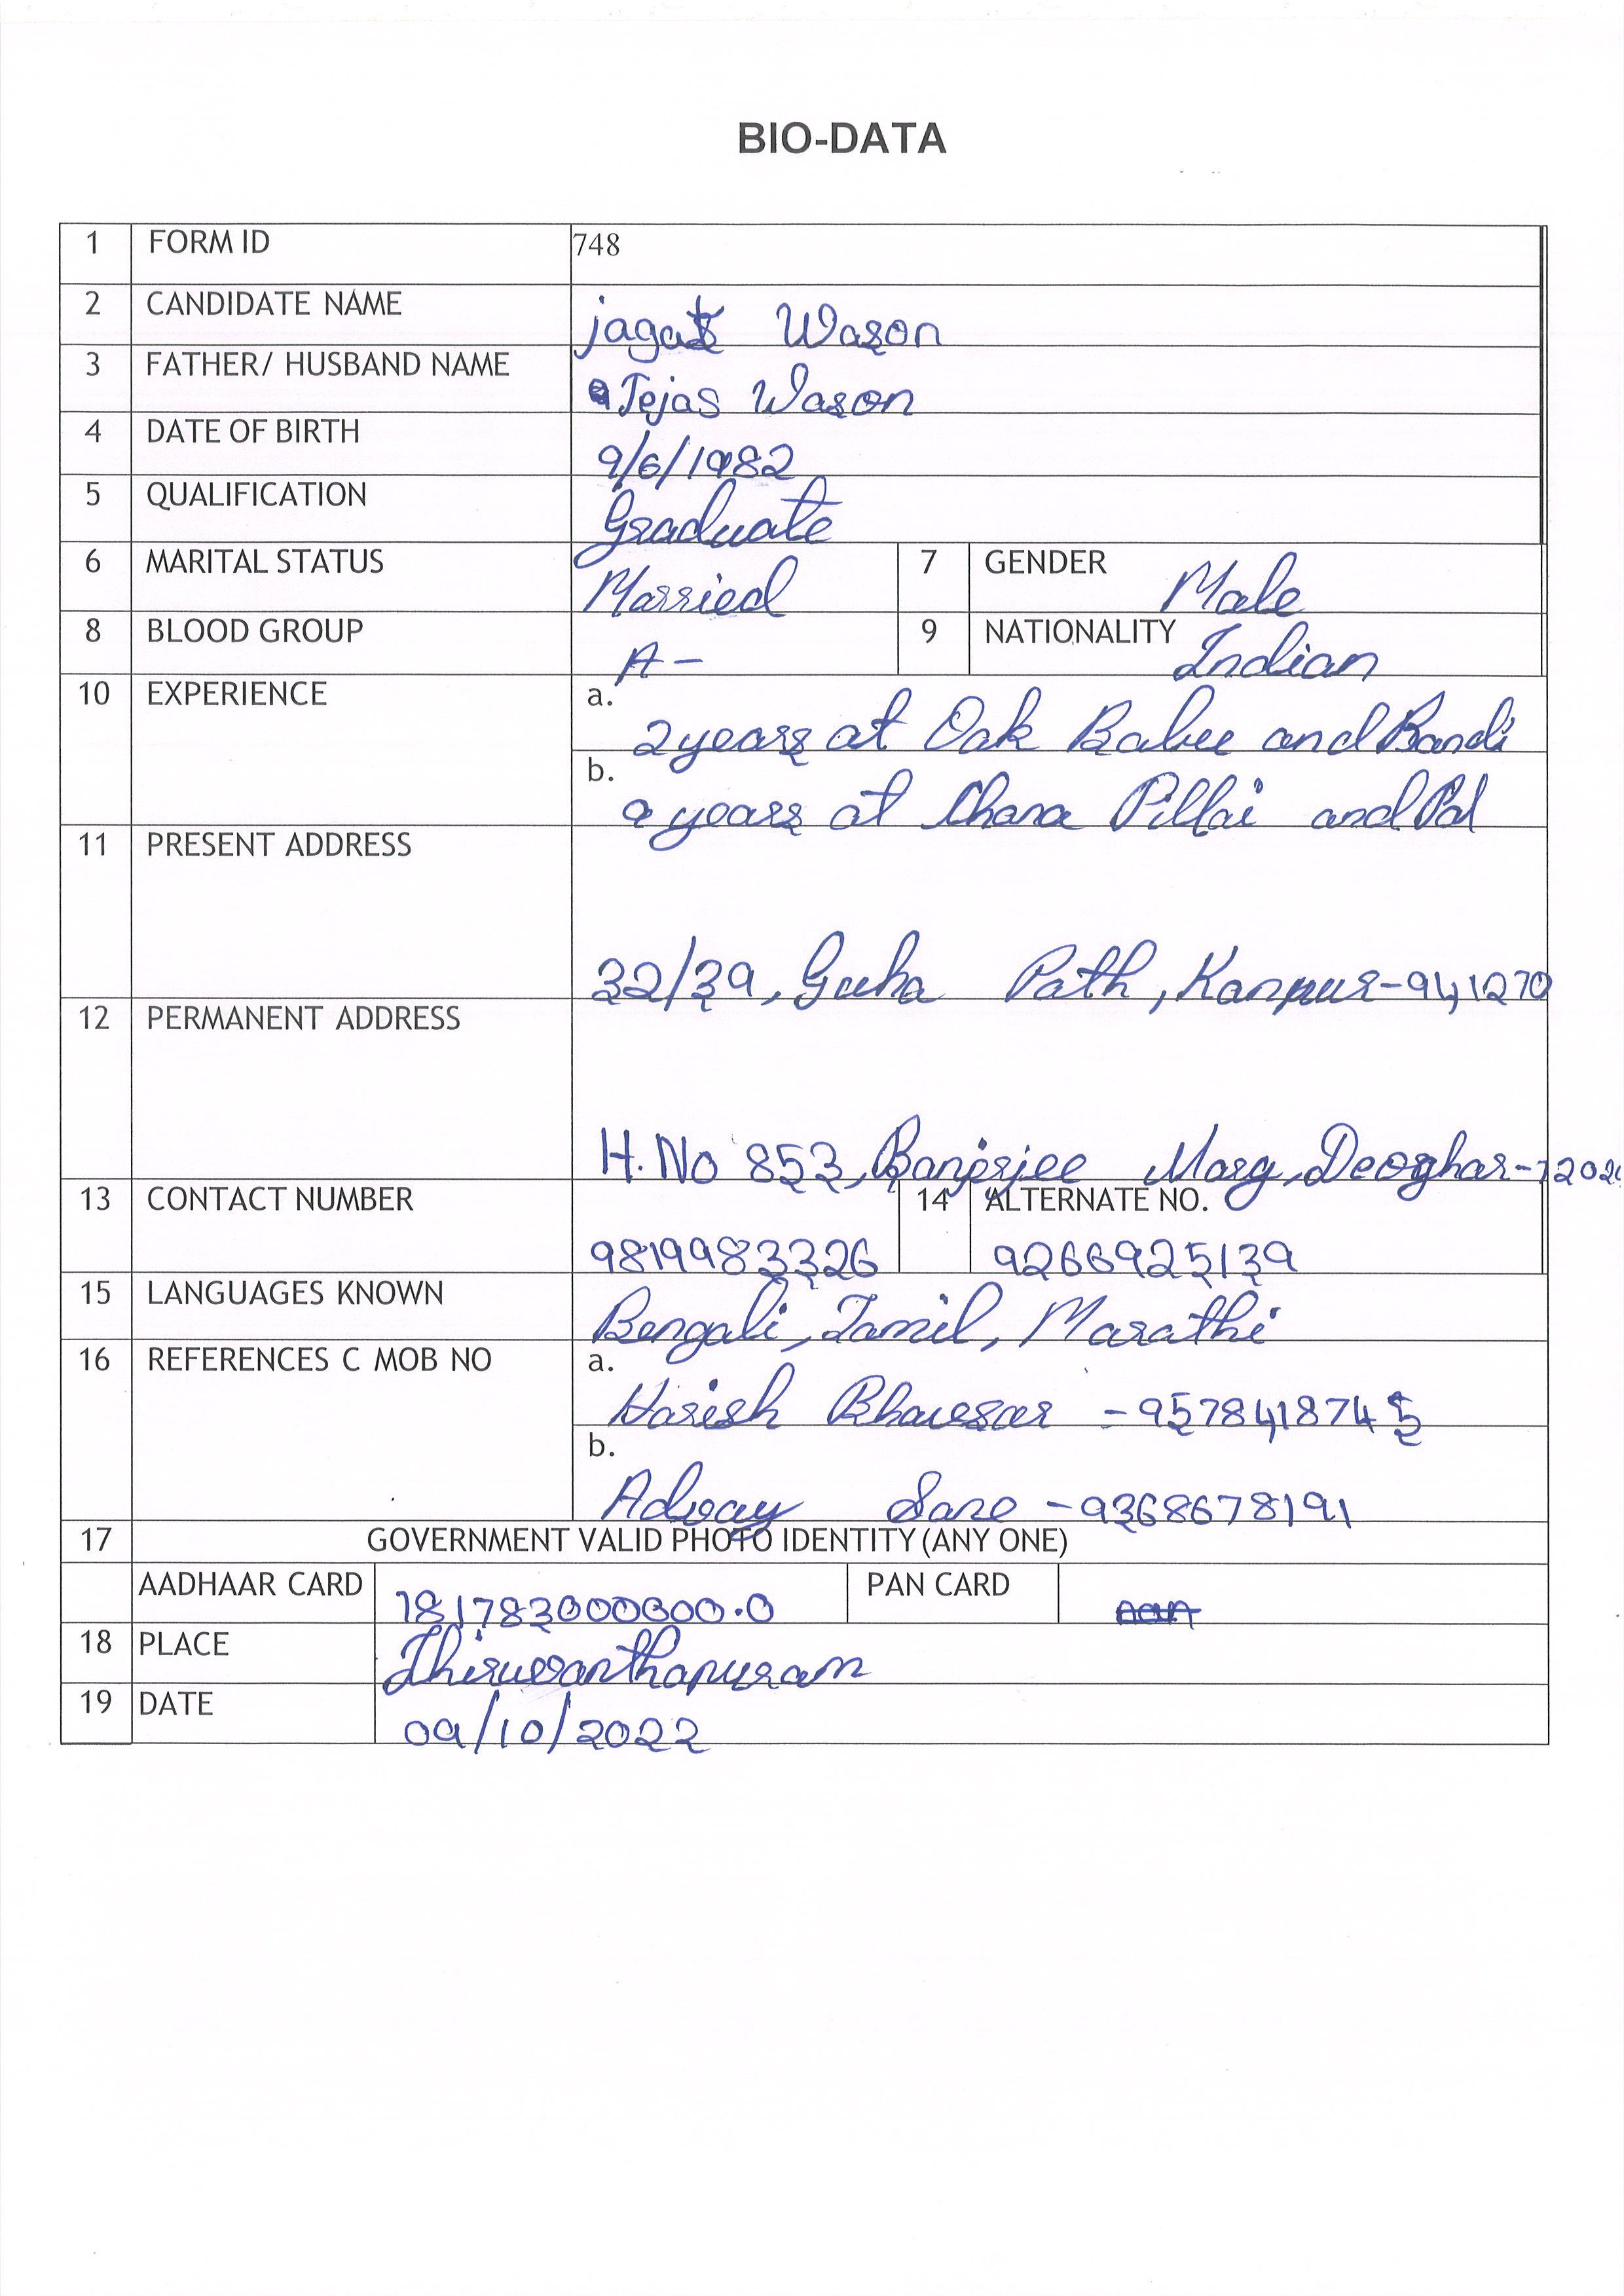 BIO-DATA
1 FORM ID 748
2 CANDIDATE NAME jagat Wason
3 FATHER/ HUSBAND NAME Tejas Wason
4 DATE OF BIRTH 9/6/1982
5 QUALIFICATION Graduate
6 MARITAL STATUS Married 7 GENDER Male
8 BLOOD GROUP A- 9 NATIONALITY Indian
10 EXPERIENCE a. 2 years at Oak Babu and Bandi
b. 9 years at Chana Pillai and Pal
11 PRESENT ADDRESS
32/39, Guha Path, Kanpur-941270
12 PERMANENT ADDRESS
H.No 853, Banerjee Marg, Deoghar-
13 CONTACT NUMBER 9819983326 14 ALTERNATE NO. 9266925139
15 LANGUAGES KNOWN Bengali, Tamil, Marathi
16 REFERENCES C MOB NO a.
Harish Bhavsar - 9578418745
b.
Advay Sane - 9368678191
17 GOVERNMENT VALID PHOTO IDENTITY (ANY ONE)
AADHAAR CARD 181783000000.0 PAN CARD
18 PLACE Thiruvananthapuram
19 DATE 09/10/2022